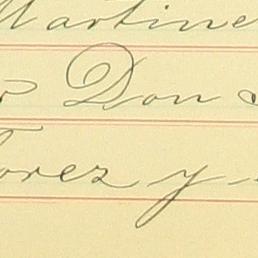 Martine
Don
orez y